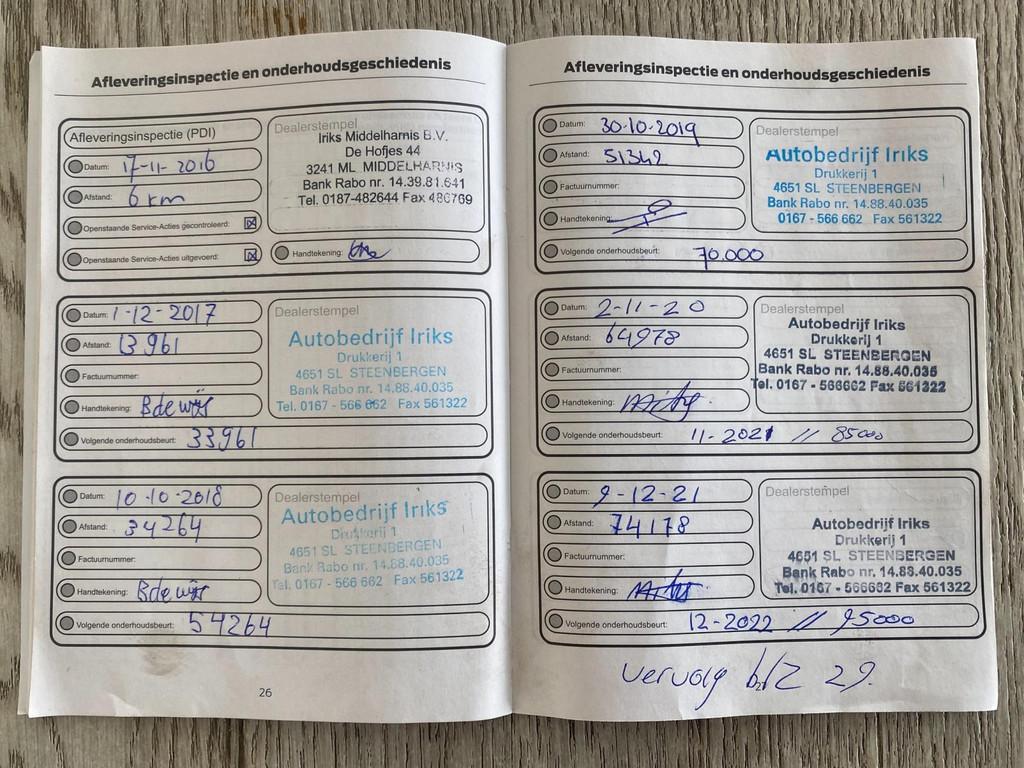 Afleveringsinspectie en onderhoudsgeschiedenis
Afleveringsinspectie (PDI)
Datum: 17-11-2016
Afstand: 6 km
Openstaande Service-Acties gecontroleerd:
Openstaande Service-Acties uitgevoerd:
Dealerstempel
Iriks Middelharnis B.V.
De Hofjes 44
3241 ML MIDDELHARNIS
Bank Rabo nr. 14.39.81.641
Tel. 0187-482644 Fax 480769
Handtekening:
Datum: 1-12-2017
Afstand: 13961
Factuurnummer:
Handtekening: Bdewijs
Volgende onderhoudsbeurt: 33961
Dealerstempel
Autobedrijf Iriks
Drukkerij 1
4651 SL STEENBERGEN
Bank Rabo nr. 14.88.40.035
Tel. 0167 - 566 662 Fax 561322
Datum: 10-10-2018
Afstand: 34264
Factuurnummer:
Handtekening: Bdewijs
Volgende onderhoudsbeurt: 54264
Dealerstempel
Autobedrijf Iriks
Drukkerij 1
4651 SL STEENBERGEN
Bank Rabo nr. 14.88.40.035
Tel. 0167 - 566 662 Fax 561322
26
Afleveringsinspectie en onderhoudsgeschiedenis
Datum: 30-10-2019
Afstand: 51342
Factuurnummer:
Handtekening:
Volgende onderhoudsbeurt: 70.000
Dealerstempel
Autobedrijf Iriks
Drukkerij 1
4651 SL STEENBERGEN
Bank Rabo nr. 14.88.40.035
0167 - 566 662 Fax 561322
Datum: 2-11-20
Afstand: 64978
Factuurnummer:
Handtekening:
Volgende onderhoudsbeurt: 11-2021 // 85000
Dealerstempel
Autobedrijf Iriks
Drukkerij 1
4651 SL STEENBERGEN
Bank Rabo nr. 14.88.40.035
Tel. 0167 - 566662 Fax 561322
Datum: 9-12-21
Afstand: 74178
Factuurnummer:
Handtekening:
Volgende onderhoudsbeurt: 12-2022 // 95000
Dealerstempel
Autobedrijf Iriks
Drukkerij 1
4651 SL STEENBERGEN
Bank Rabo nr. 14.88.40.035
Tel. 0167 - 566662 Fax 561322
vervolg blz 29.